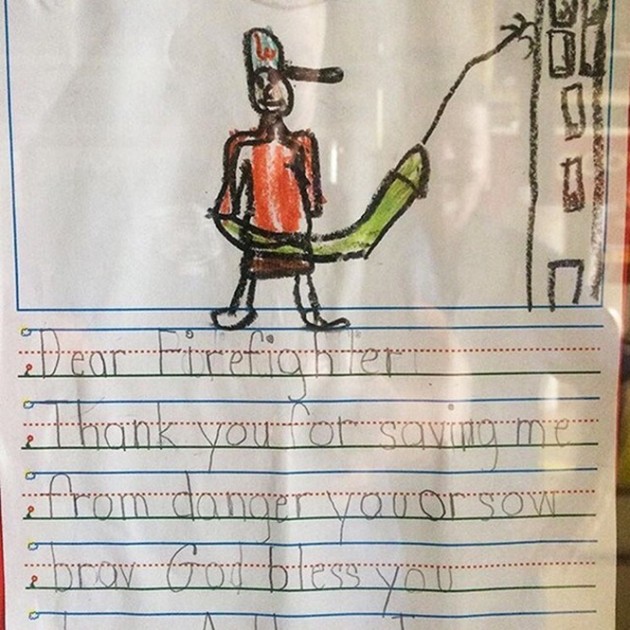 Dear Firefighter
Thank you for saving me
from danger you or sow
brav God bless you